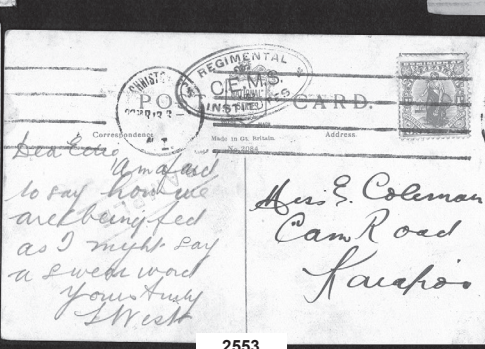 CHRISTCH
REGIMENTAL
C.E.M.S.
INSTITUTES
POST CARD.
Correspondence
Made in Gt. Britain.
No. 2084
Address.
Dear Effie
am afraid
to say how we
are being fed
as I might say
a swear word
Yours truly
West
Miss E. Coleman
Cam Road
Kaiapoi
2553